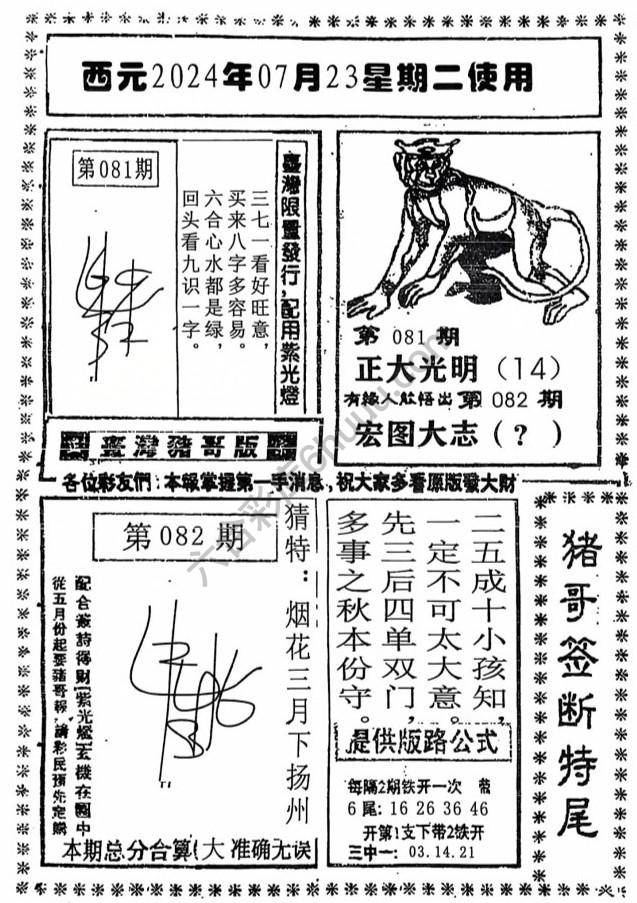 西元2024年07月23星期二使用
第081期
臺灣限量發行，配用紫光燈
三七一看好旺意，
买来八字多容易。
六合心水都是绿，
回头看九识一字。
臺灣豬哥版
第 081 期
正大光明（14）
有緣人能悟出 第 082 期
宏图大志（？）
各位彩友們：本報掌握第一手消息，祝大家多看原版發大財
第 082 期
猜特：烟花三月下扬州
配合簽詩得财(紫光燈)玄機在圖中
從五月份起要豬哥報，請彩民預先定購
本期总分合算(大 准确无误
二五成十小孩知，
一定不可太大意。
先三后四单双门，
多事之秋本份守。
提供版路公式
每隔2期铁开一次 带
6 尾：16 26 36 46
开第1支下带2铁开
三中一：03.14.21
猪哥签断特尾